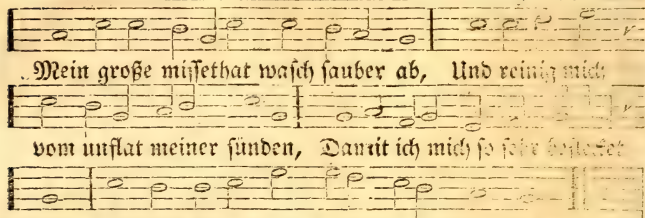 Mein große missethat wasch sauber ab, Und reinig mich
vom unflat meiner sünden, Damit ich mich so sehr beflecket